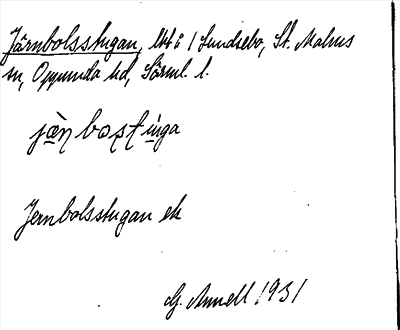 Järnbolsstugan, lht å 1 Sundsebo, St. Malms
sn, Oppunda hd, Sörml. l.
jä̀ṇbosṭi̇̀nga
Jernbolsstugan ek
G. Annell 1931